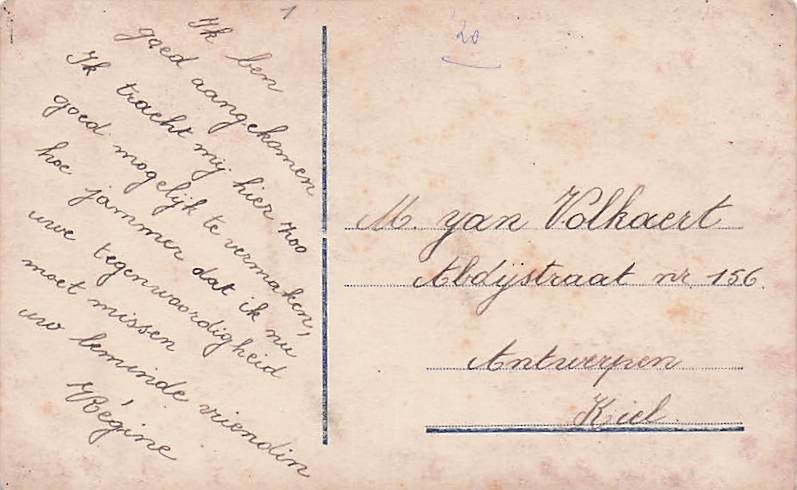 1
'20
Ik ben
goed aangekomen
Ik tracht mij hier zoo
goed mogelijk te vermaken,
hoe jammer dat ik nu
uwe tegenwoordigheid
moet missen
uw beminde vriendin
Régine
M. Jan Volkaert
Abdijstraat nr 156.
Antwerpen
Kiel.